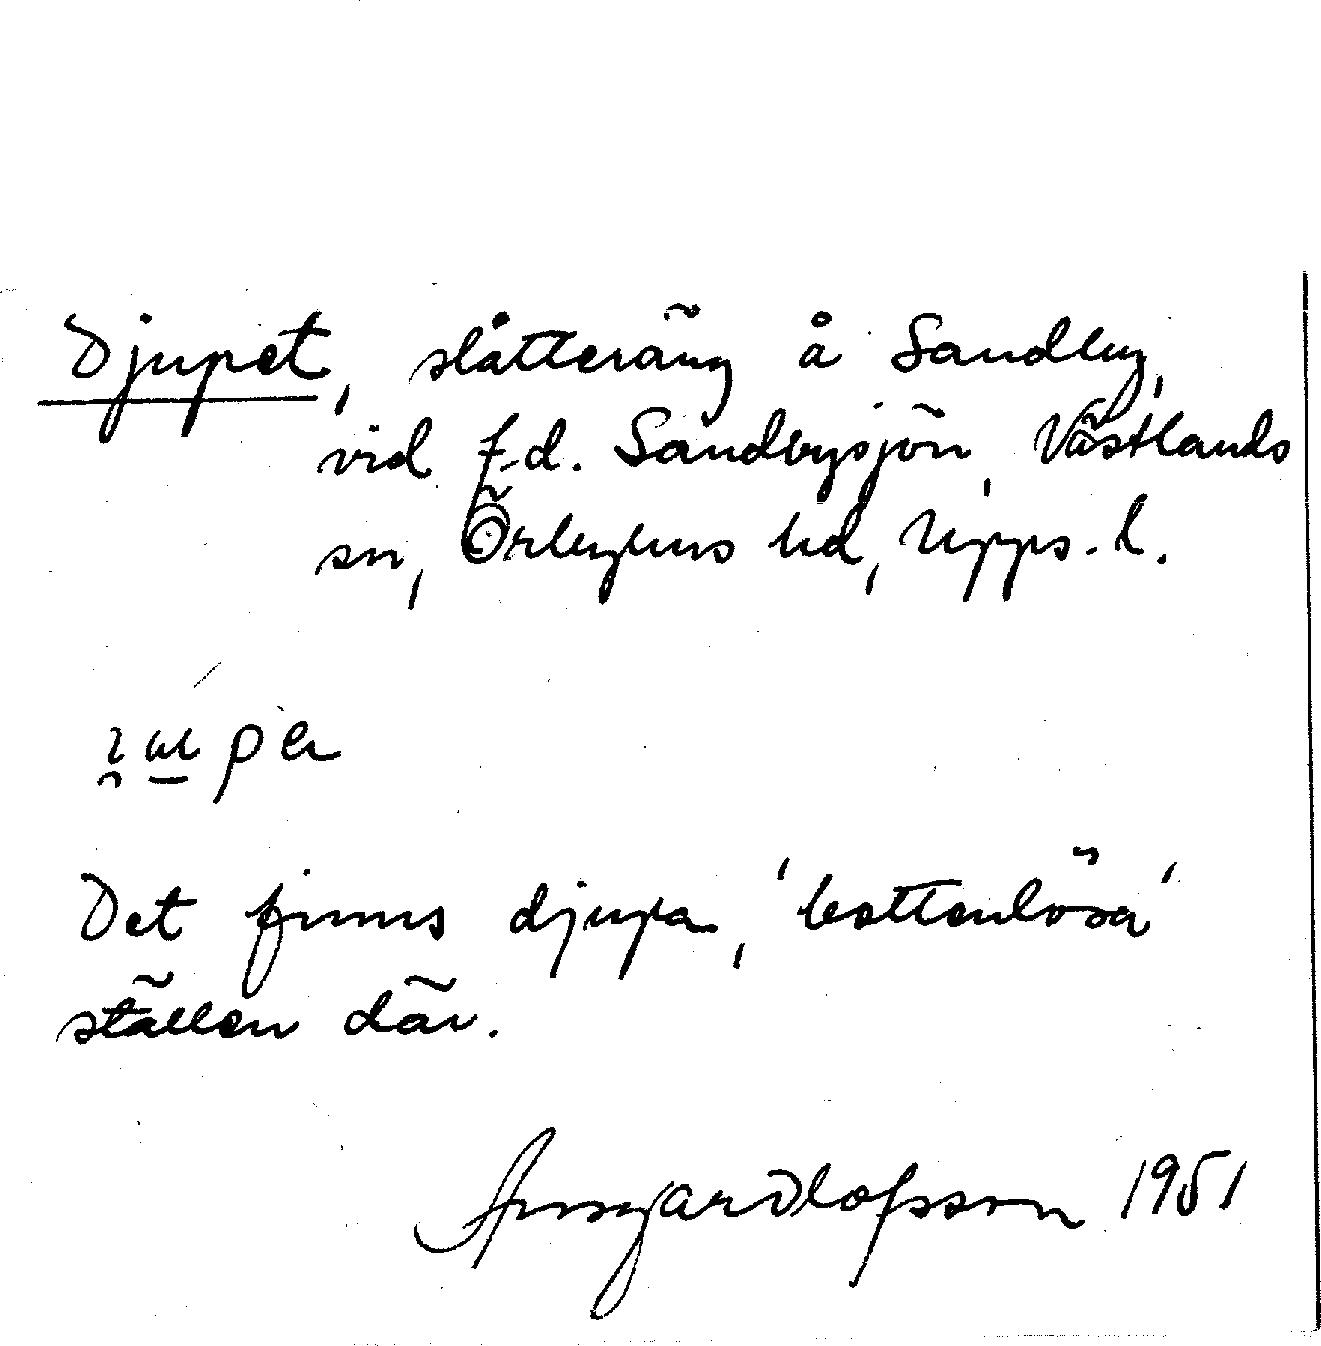 Djupet, slåtteräng å Sandby,
vid f.d. Sandbysjön, Västlands
sn, Örbyhus hd, Upps. l.
Det finns djupa, 'bottenlösa'
ställen där.
Ansgar Olofsson 1951